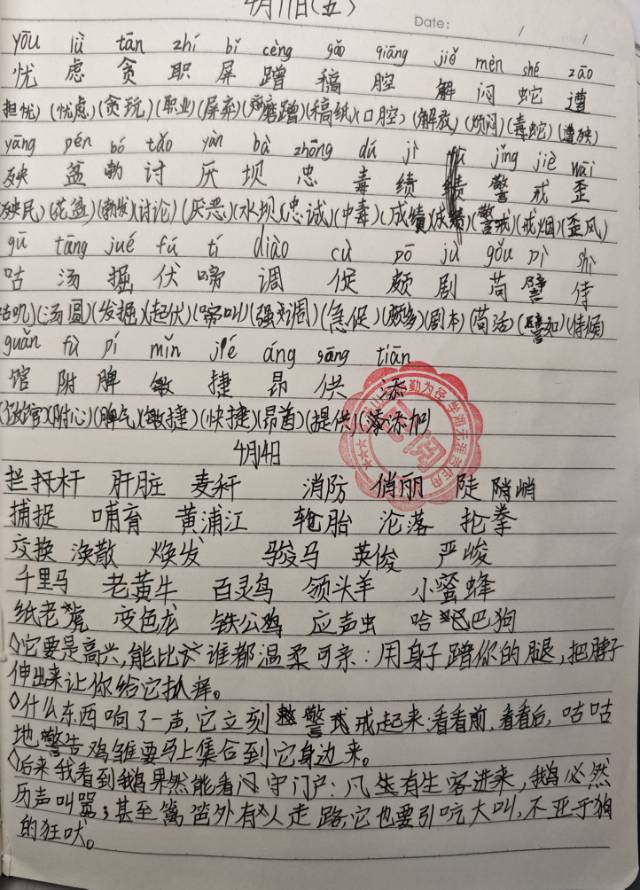 4月11日(五)
Date: / /
yōu lǜ tān zhí bǐ cèng gǎo qiāng jiě mèn shé zāo
忧 虑 贪 职 屏 蹭 稿 腔 解 闷 蛇 遭
担忧)(忧虑)(贪玩)(职业)(屏弃)(磨蹭)(稿纸)(口腔)(解放)(烦闷)(毒蛇)(遭殃)
yāng pén bó tǎo yàn bà zhōng dú jì jǐng jiè wāi
殃 盆 勃 讨 厌 坝 忠 毒 绩 警 戒 歪
殃民)(花盆)(勃发)(讨论)(厌恶)(水坝)(忠诚)(中毒)(成绩)(成绩)(警戒)(戒烟)(歪风)
gū tāng jué fú tí diào cù pō jù gǒu pì shì
咕 汤 掘 伏 啼 调 促 颇 剧 苟 譬 侍
咕叽)(汤圆)(发掘)(起伏)(啼叫)(强调)(急促)(颇多)(剧本)(苟活)(譬如)(侍候)
guǎn fù pí mǐn jié áng gōng tiān
馆 附 脾 敏 捷 昂 供 添
(附心)(脾气)(敏捷)(快捷)(昂首)(提供)(添加)
4月4日
拦 秆 杆 肝脏 麦秆 消防 俏丽 陡 陗 峭
捕捉 哺育 黄浦江 轮胎 沦落 抡拳
交换 涣散 焕发 骏马 英俊 严峻
千里马 老黄牛 百灵鸟 领头羊 小蜜蜂
纸老虎 变色龙 铁公鸡 应声虫 哈巴狗
◇它要是高兴,能比谁都温柔可亲:用身子蹭你的腿,把脖子
伸出来让你给它抓痒。
◇什么东西响了一声,它立刻警戒起来:看看前,看看后,咕咕
地警告鸡雏要马上集合到它身边来。
◇后来我看到鹅果然能看守门户:凡生有生客进来,鹅必然
厉声叫嚣;甚至篱笆外有人走路,它也要引吭大叫,不亚于狗
的狂吠。